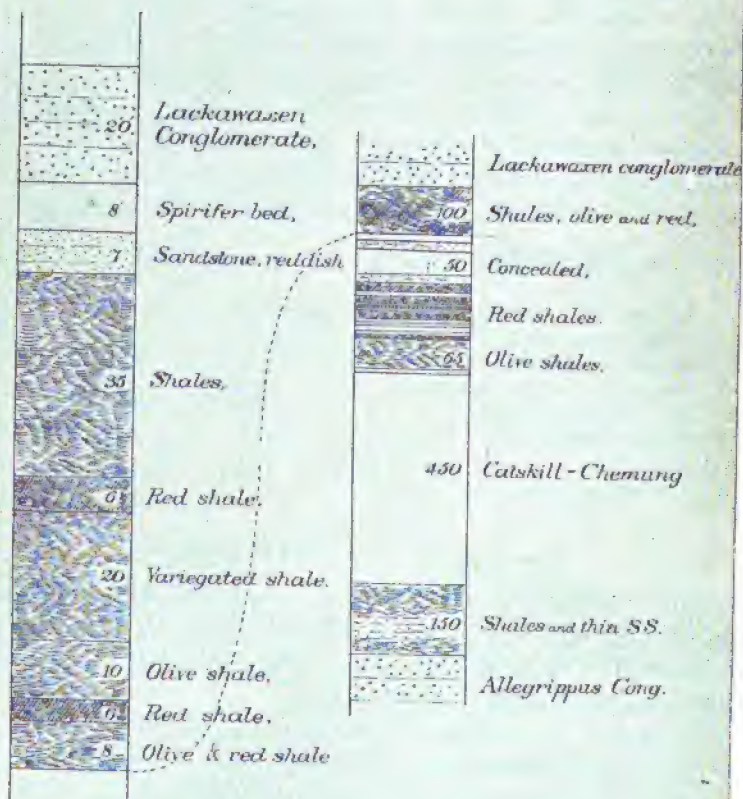 20 Lackawaxen
Conglomerate,
8 Spirifer bed,
7 Sandstone, reddish
35 Shales,
6 Red shale,
20 Variegated shale.
10 Olive shale,
6 Red shale,
8 Olive & red shale
Lackawaxen conglomerate
100 Shales, olive and red,
50 Concealed,
Red shales.
65 Olive shales.
450 Catskill-Chemung
150 Shales and thin SS.
Allegrippus Cong.